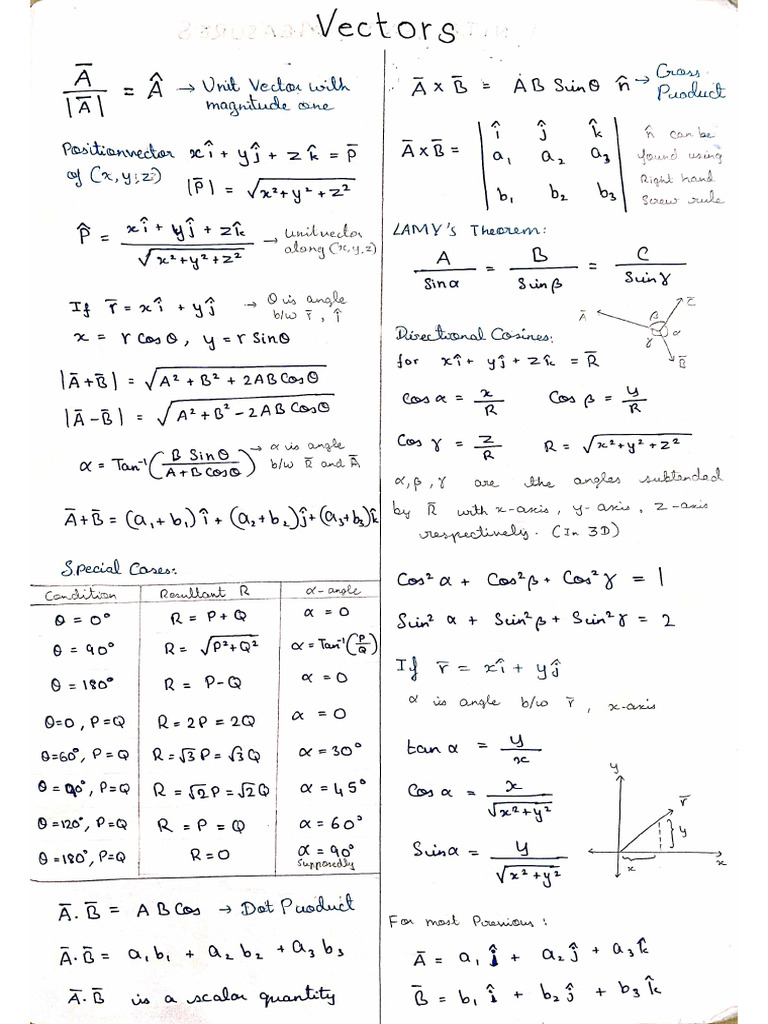 Vectors
Ā / |Ā| = Â → Unit Vector with
magnitude one
Position vector x î + y ĵ + z k̂ = P̄
of (x, y, z) |P̄| = √(x²+y²+z²)
P̂ = (x î + y ĵ + z k̂) / √(x²+y²+z²) → unit vector
along (x, y, z)
If r̄ = x î + y ĵ → θ is angle
b/w r̄, î
x = r Cos θ, y = r Sin θ
|Ā+B̄| = √(A² + B² + 2AB Cos θ)
|Ā−B̄| = √(A² + B² − 2AB Cos θ)
α = Tan⁻¹ (B Sin θ / A + B Cos θ) → α is angle
b/w R̄ and Ā
Ā+B̄ = (a₁+b₁) î + (a₂+b₂) ĵ + (a₃+b₃) k̂
Special Cases:
Condition Resultant R α-angle
θ = 0° R = P + Q α = 0
θ = 90° R = √(P²+Q²) α = Tan⁻¹ (P/Q)
θ = 180° R = P-Q α = 0
θ=0, P=Q R = 2P = 2Q α = 0
θ=60°, P=Q R = √3 P = √3 Q α = 30°
θ = 90°, P=Q R = √2 P = √2 Q α = 45°
θ=120°, P=Q R = P = Q α = 60°
θ=180°, P=Q R = 0 α = 90°
Supposedly
Ā.B̄ = A B Cos → Dot Product
Ā.B̄ = a₁b₁ + a₂b₂ + a₃b₃
Ā.B̄ is a scalar quantity
Ā x B̄ = AB Sin θ n̂ → Cross
Product
Ā x B̄ = | î ĵ k̂ | n̂ can be
| a₁ a₂ a₃ | found using
| b₁ b₂ b₃ | Right hand
Screw rule
LAMY's Theorem:
A / Sin α = B / Sin β = C / Sin γ
Ā β C̄
γ α
B̄
Directional Cosines:
for x î + y ĵ + z k̂ = R̄
Cos α = x/R Cos β = y/R
Cos γ = z/R R = √(x²+y²+z²)
α, β, γ are the angles subtended
by R̄ with x-axis, y-axis, z-axis
respectively. (In 3D)
Cos² α + Cos² β + Cos² γ = 1
Sin² α + Sin² β + Sin² γ = 2
If r̄ = x î + y ĵ
α is angle b/w r̄, x-axis
tan α = y/x
Cos α = x / √(x²+y²)
Sin α = y / √(x²+y²)
y
r̄
y
x
x
For most Previous:
Ā = a₁ î + a₂ ĵ + a₃ k̂
B̄ = b₁ î + b₂ ĵ + b₃ k̂